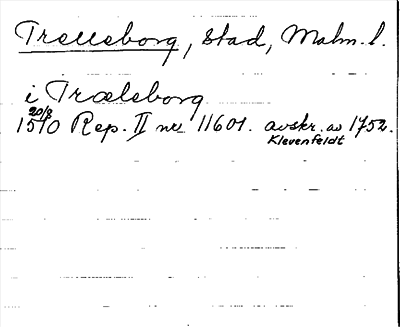 Trelleborg, stad, Malm. l.
i Trælsborg
20/8
1510 Rep. II nr 11601. avskr. av 1752.
Klevenfeldt